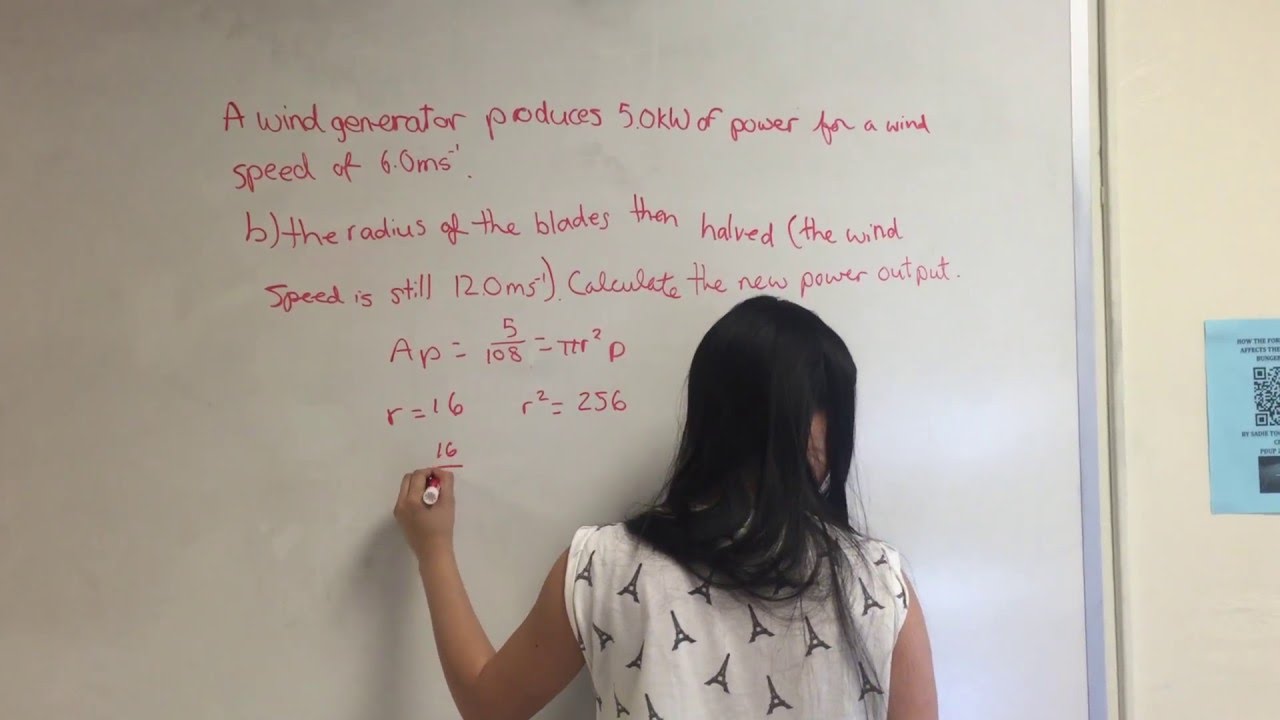 A wind generator produces 5.0kW of power for a wind
speed of 6.0ms⁻¹.
b) the radius of the blades then halved (the wind
speed is still 12.0ms⁻¹). Calculate the new power output.
Ap = 5/108 = πr²p
r = 16 r² = 256
16
HOW THE FOR
AFFECTS THE
BUNGE
BY SADIE TO
PDUP 2